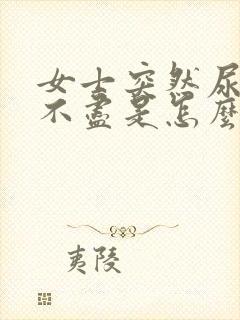 女士突然尿
不盡是怎麼
夷陵